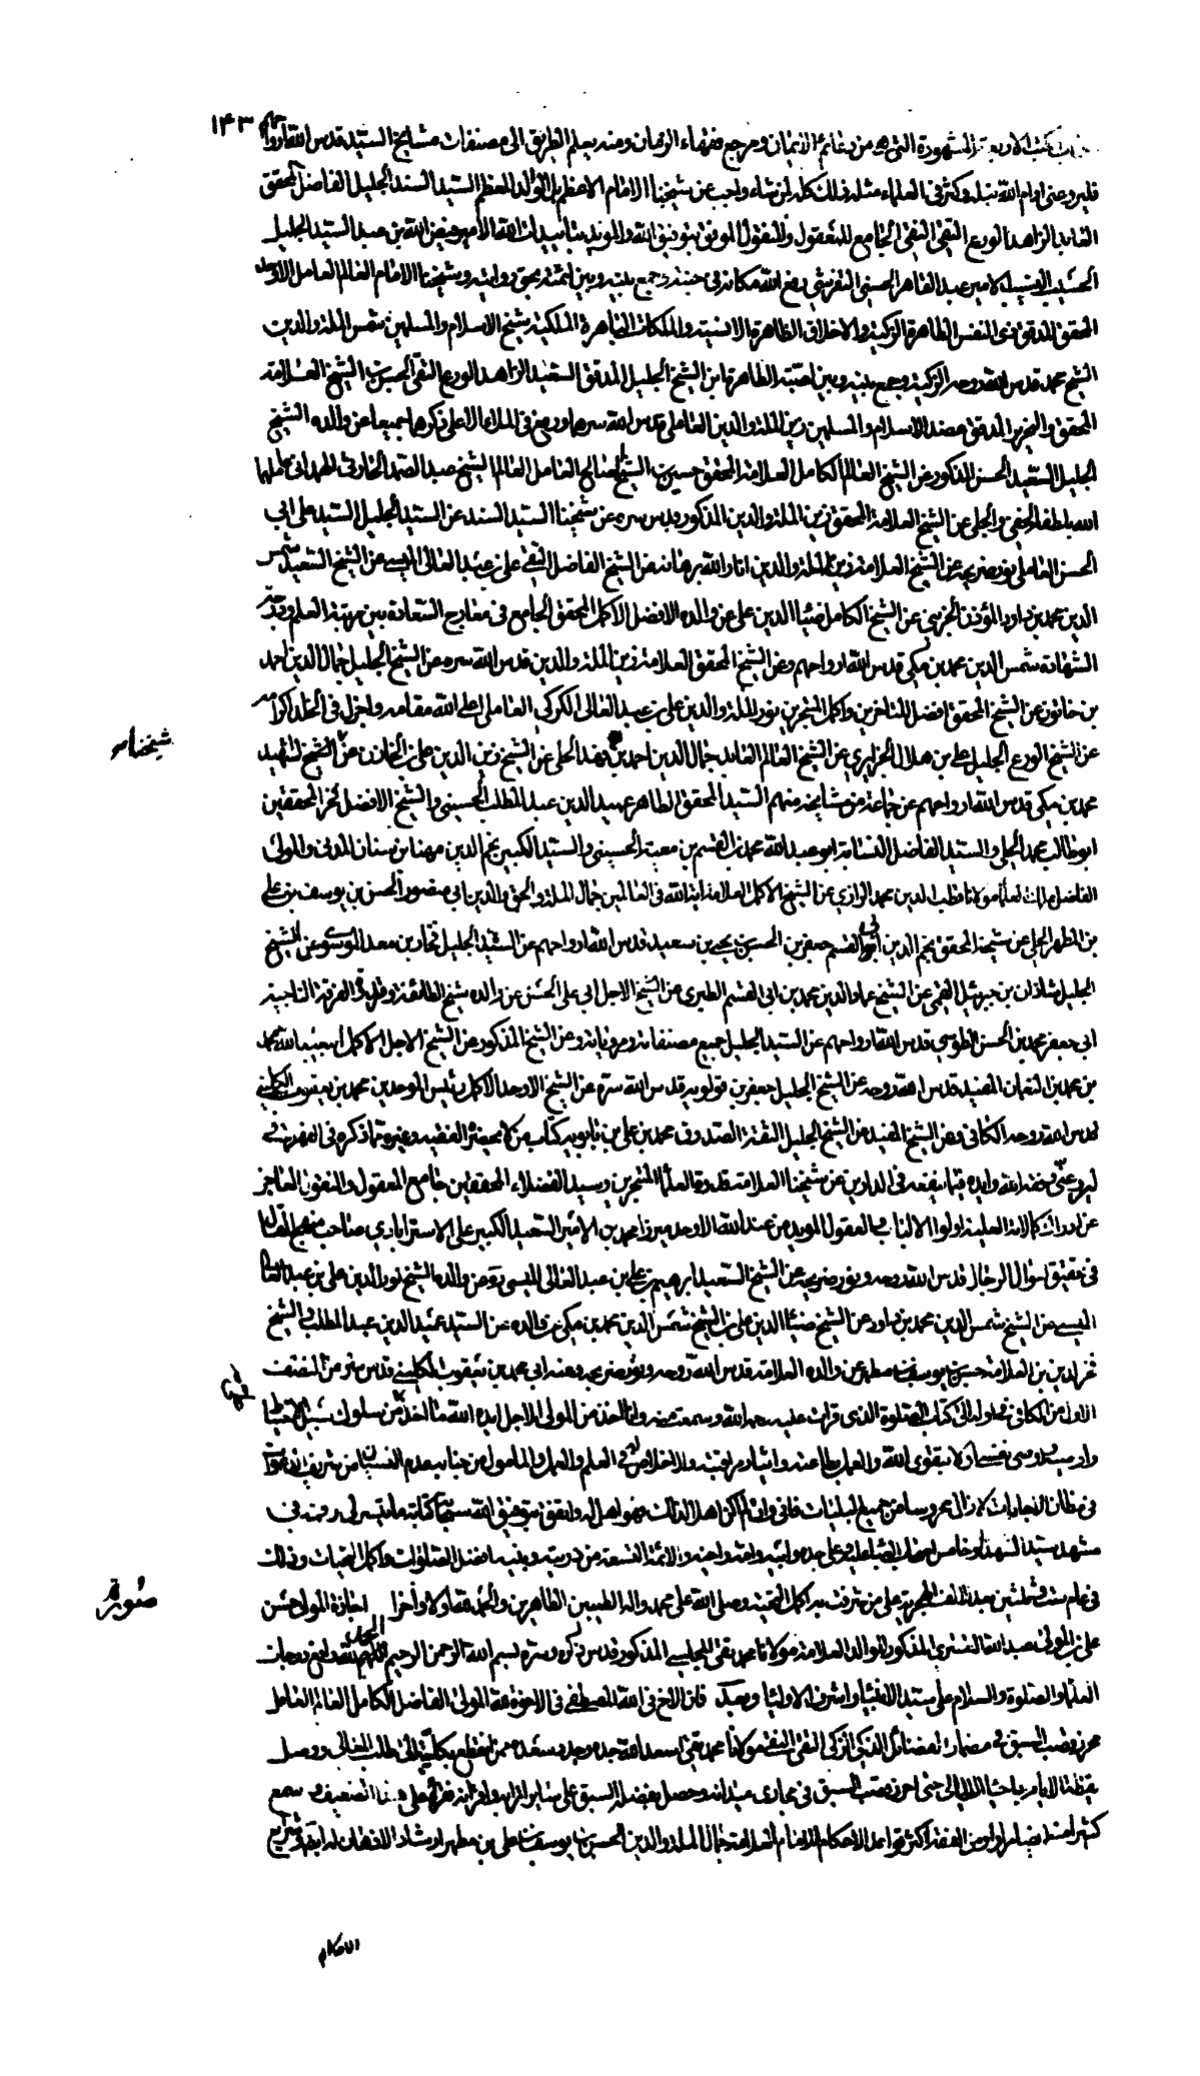 ۱۴۳
الكتب الاربعة المشهورة التي هي من دعائم الايمان ومرجع فقهاء الزمان ومنه يعلم الطريق الى مصنفات مشايخ السيد قدس الله ارواحهم
فليرو عني ادام الله نبله وكثر في العلماء مثله ذلك كله لمن شاء واحب عن شيخنا الامام الاعظم بل الوالد المعظم السيد السند الجليل الفاضل المحقق
العابد الزاهد الورع التقي النقي الجامع للمعقول والمنقول الموفق بتوفيق الله والمؤيد بتأييدات الله الامير فيض الله بن عبد السيد الجليل
الحسيب النسيب الامير عبد القاهر الحسيني التفرشي رفع الله مكانه في جنته وجمع بينه وبين ائمته بحق وشيخنا الامام العالم العامل الاوحد
المحقق المدقق ذي النفس الطاهرة الزكية والاخلاق الظاهرة الانسية والملكات الباهرة الملكية شيخ الاسلام والمسلمين شمس الملة والدين
الشيخ محمد قدس الله روحه الزكية وجمع بينه وبين احبته الطاهرة ابن الشيخ الجليل المدقق السعيد الزاهد الورع التقي الحسن بن الشيخ العلامة
المحقق والنحرير المدقق عضد الاسلام والمسلمين زين الملة والدين العاملي قدس الله سرهما ورفع في الملاء الاعلى ذكرهما جميعا عن والده الشيخ
الجليل السعيد الحسن المذكور عن الشيخ العالم الكامل العلامة المحقق حسين بن الشيخ الصالح العامل العالم الشيخ عبد الصمد الحارثي الهمداني عاملهما
الله بلطفه الخفي والجلي عن الشيخ العلامة المحقق زين الملة والدين المذكور قدس سره عن شيخنا السيد السند عن السيد الجليل السيد علي ابي
الحسن العاملي نور ضريحه عن الشيخ العلامة زين الملة والدين انار الله برهانه عن الشيخ الفاضل التقي علي بن عبد العالي الميسي عن الشيخ السعيد شمس
الدين محمد بن داود المؤذن الجزيني عن الشيخ الكامل ضياء الدين علي عن والده الافضل الاكمل المحقق الجامع في معارج السعادة بين مرتبة العلم ودرجة
الشهادة شمس الدين محمد بن مكي قدس الله ارواحهم وعن الشيخ المحقق العلامة زين الملة والدين قدس الله سره عن الشيخ الجليل جمال الدين احمد
بن خاتون عن الشيخ المحقق افضل المتاخرين واكمل المتبحرين نور الملة والدين علي بن عبد العالي الكركي العاملي اعلى الله مقامه واجزل في الخلد اكرامه
عن الشيخ الورع الجليل علي بن هلال الجزايري عن الشيخ العالم العابد جمال الدين احمد بن فهد الحلي عن الشيخ زين الدين علي بن الخازن عن الشيخ الشهيد
شيخنا
محمد بن مكي قدس الله ارواحهم عن جماعة من مشايخه منهم السيد المحقق الطاهر عميد الدين عبد المطلب الحسيني والشيخ الافضل فخر المحققين
ابو طالب محمد الحلي والسيد الفاضل النسابة ابو عبد الله محمد بن القسم بن معية الحسيني والسيد الكبير نجم الدين مهنا بن سنان المدني والمولى
الفاضل ملك العلماء مولانا قطب الدين محمد الرازي عن الشيخ الاكمل العلامة اية الله في العالمين جمال الملة والحق والدين ابي منصور الحسن بن يوسف بن علي
بن المطهر الحلي عن شيخه المحقق نجم الدين ابي القسم جعفر بن الحسن بن يحيى بن سعيد قدس الله ارواحهم عن السيد الجليل فخار بن معد الموسوي عن الشيخ
الجليل شاذان بن جبرئيل القمي عن الشيخ عماد الدين محمد بن ابي القسم الطبري عن الشيخ الاجل ابي علي الحسن عن والده شيخ الطائفة وقدوة الفرقة الناجية
ابي جعفر محمد بن الحسن الطوسي قدس الله ارواحهم عن السيد الجليل جميع مصنفاته ومروياته وعن الشيخ المذكور عن الشيخ الاجل الاكمل ابي عبد الله محمد
بن محمد بن النعمان المفيد قدس الله روحه عن الشيخ الجليل جعفر بن قولويه قدس الله سره عن الشيخ الاوحد الاكمل رئيس الموحدين محمد بن يعقوب الكليني
قدس الله روحه الكافي وعن الشيخ المفيد عن الشيخ الجليل الثقة الصدوق محمد بن علي بن بابويه كتاب من لا يحضره الفقيه وغيره مما ذكره في الفهرست
ليرو عني وفقه الله وايده فيما ينفعه في الدارين عن شيخنا العلامة قدوة العلماء المتبحرين وسيد الفضلاء المحققين جامع المعقول والمنقول العاجز
عن ادراك كمالاته العلية اولوا الالباب والعقول المؤيد من عند الله الاوحد ميرزا محمد بن الامير السعيد الكبير علي الاسترابادي صاحب منهج المقال
في تحقيق احوال الرجال قدس الله روحه ونور ضريحه عن الشيخ السعيد ابراهيم بن علي بن عبد العالي الميسي عن والده الشيخ نور الدين علي بن عبد العالي
الميسي عن الشيخ شمس الدين محمد بن داود عن الشيخ ضياء الدين علي بن الشيخ شمس الدين محمد بن مكي عن والده عن السيد عميد الدين عبد المطلب والشيخ
فخر الدين بن العلامة حسن بن يوسف بن مطهر عن والده العلامة قدس الله روحه ونور ضريحه وعنه ابي محمد بن يعقوب الكليني قدس سره من النصف
الاول من الكافي من اوله الى كتاب الصلوة الذي قرات عليه رحمه الله وسمعت منه والماخوذ من المولى الاجل ايده الله ما اخذ من سلوك سبيل الاحتياط
واوصيه ونفسي اولا بتقوى الله والعمل بطاعته واتباع مراقبته والاخلاص في العلم والعمل والمامول من جنابه عدم النسيان من شريف الدعوات
في مظان الاجابات لازال محروسا من جميع البليات فاني وان لم اكن اهلا لذلك فهو اهل له واتفق بتوفيق الله سبحانه كتابة ما تيسر لي رحمته في
مشهد سيد الشهداء وخامس اصحاب العباء عليه وعلى جده وابيه وامه واخيه والائمة التسعة من ذريته وبنيه افضل الصلوات واكمل التحيات وذلك
في عام ست وثلثين بعد الالف الهجرية على من شرفت به اكمل التحية وصلى الله على محمد واله الطيبين الطاهرين والحمد لله اولا واخرا اجازة المولى حسن
صورة
علي بن المولى عبد الله التستري المذكور للوالد العلامة مولانا محمد تقي المجلسي المذكور قدس ذكره وسره بسم الله الرحمن الرحيم الحمد لله رافع درجات
العلماء والصلوة والسلام على سيد الانبياء واشرف الاولياء وبعد فان الاخ في الله المصطفى في الاخوة لله المولى الفاضل الكامل العالم العامل
محرز قصب السبق في مضمار الفضائل الذكي الزكي التقي النقي مولانا محمد تقي اسعد الله جده وجدد سعده ممن انقطع بكليته الى طلب المعالي ووصل
يقظة الايام باحياء الليالي حتى احرز قصب السبق في مجاري ميدانه وحصل بفضله السبق على سائر اترابه واقرانه قرأ على الضعيف وسمع
كثيرا من الفقه اكثر قواعد الاحكام للامام العلامة جمال الملة والدين الحسن بن يوسف بن علي بن مطهر ارشاد الاذهان له ايضا وشرايع
الاحكام